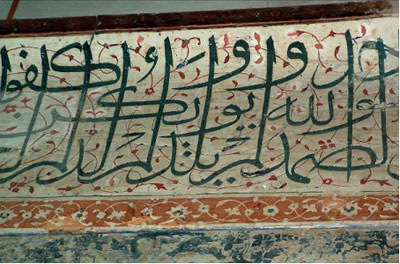 الله الصمد لم يلد ولم يولد ولم يكن له كفوا